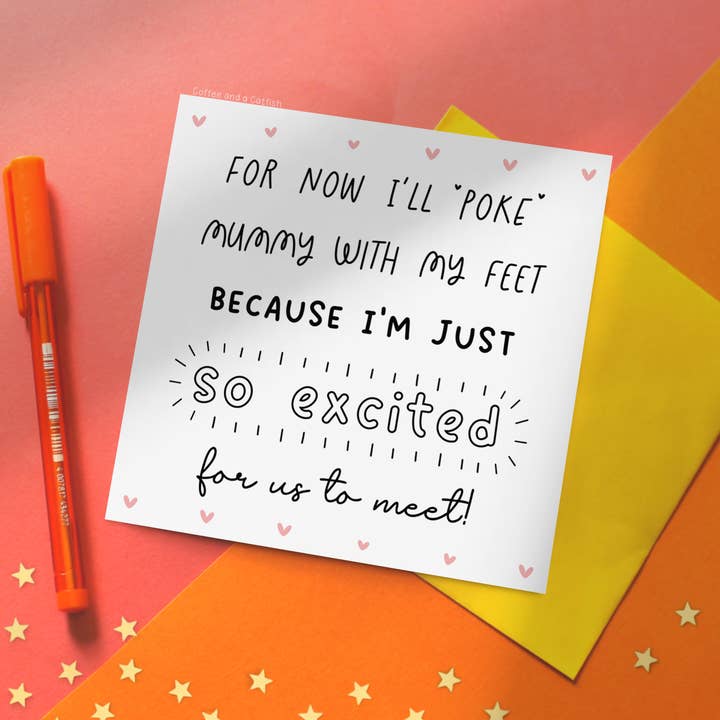 Coffee and a Catfish
FOR NOW I'LL "POKE"
MUMMY WITH MY FEET
BECAUSE I'M JUST
so excited
for us to meet!